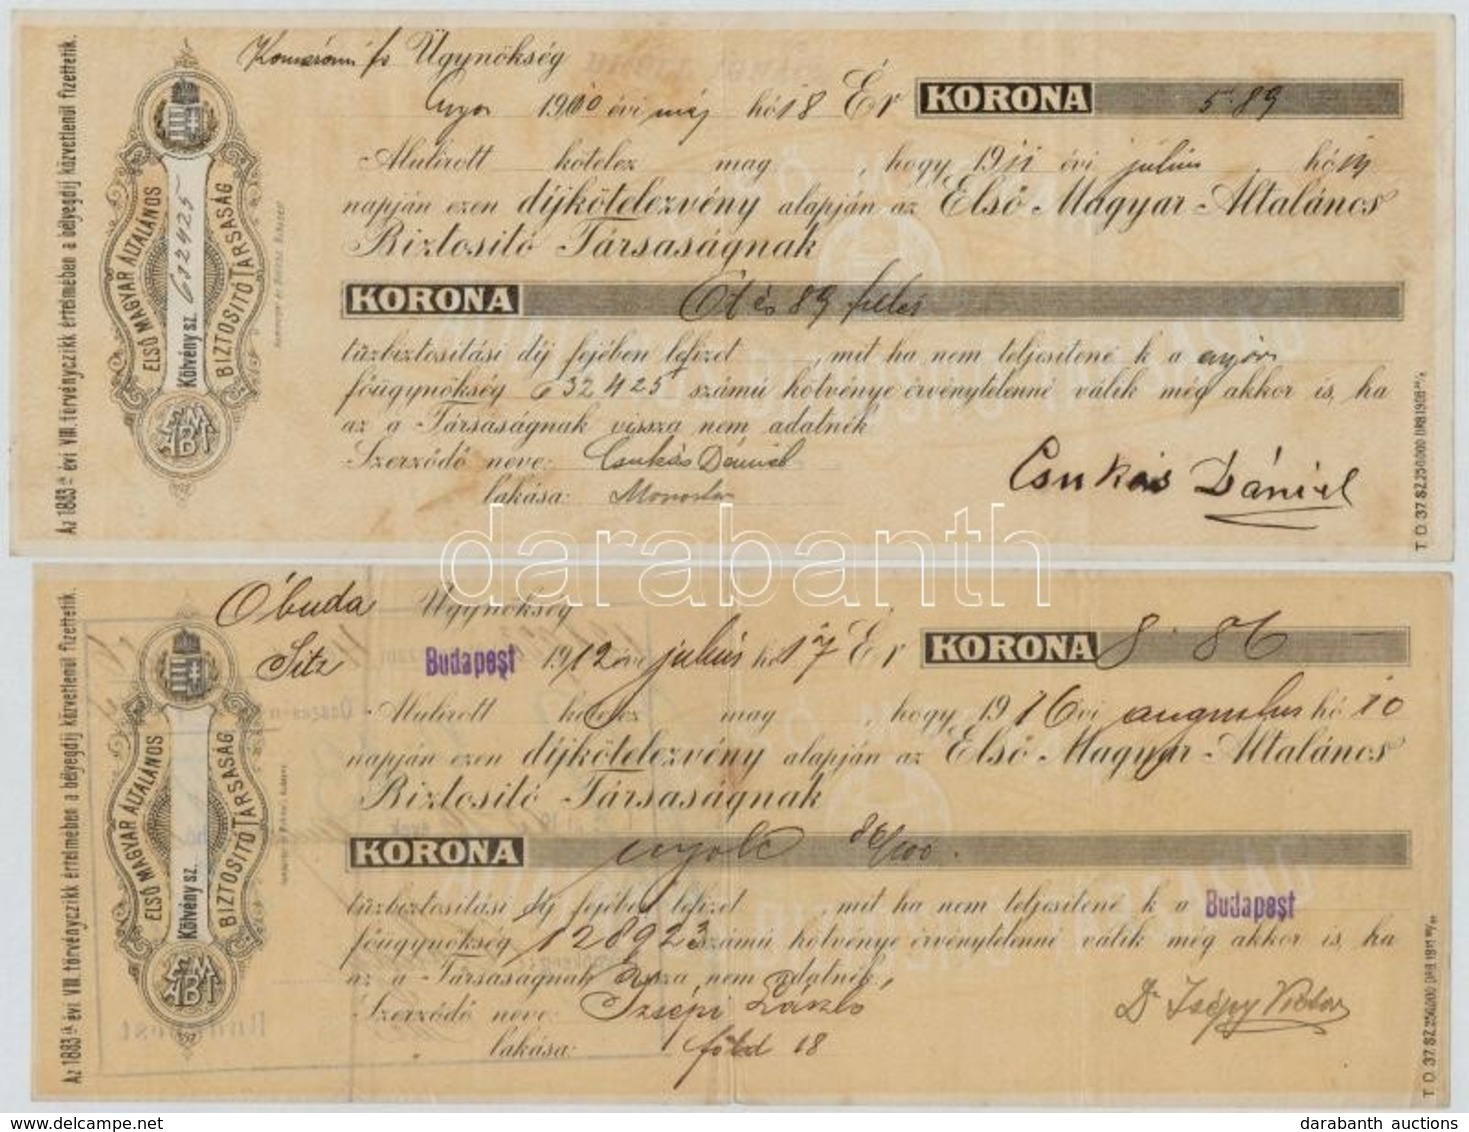 Az 1883ik évi VIII. törvényczikk értelmében a bélyegdíj közvetlenül fizettetik.
ELSŐ MAGYAR ÁLTALÁNOS
BIZTOSITÓ TÁRSASÁG
Kötvény sz. 632425
Komáromi Ügynökség
1910 évi máj hó 18 Ér KORONA 5.89
Alulirott kötelez mag , hogy 1911 évi július hó
napján ezen díjkötelezvény alapján az Első Magyar Altalános
Biztositó Társaságnak
KORONA Öt és 89 fillér
tüzbiztositási díj fejében lefizet , mit ha nem teljesitené k a győri
főügynökség 632425 számú kötvénye érvénytelenné válik még akkor is, ha
az a Társaságnak vissza nem adatnék
Szerződő neve: Csukás Dániel
lakása: Monostor
Csukás Dániel
T. O. 37. SZ. 250.000 DRB 1908
darabanth
Az 1883ik évi VIII. törvényczikk értelmében a bélyegdíj közvetlenül fizettetik.
ELSŐ MAGYAR ÁLTALÁNOS
BIZTOSITÓ TÁRSASÁG
Kötvény sz.
Óbuda Ügynökség
Budapest 1912 évi július hó 17 Ér KORONA 8.86
Alulirott kötelez mag , hogy 1916 évi augusztus hó 10
napján ezen díjkötelezvény alapján az Első Magyar Altalános
Biztositó Társaságnak
KORONA nyolc 86/100.
tüzbiztositási díj fejében lefizet , mit ha nem teljesitené k a Budapest
főügynökség 128923 számú kötvénye érvénytelenné válik még akkor is, ha
az a Társaságnak vissza nem adatnék,
Szerződő neve: László
lakása: föld 18
Dr
T. O. 37. SZ. 250.000 DRB 1911
www.darabanth.com
darabanth auctions